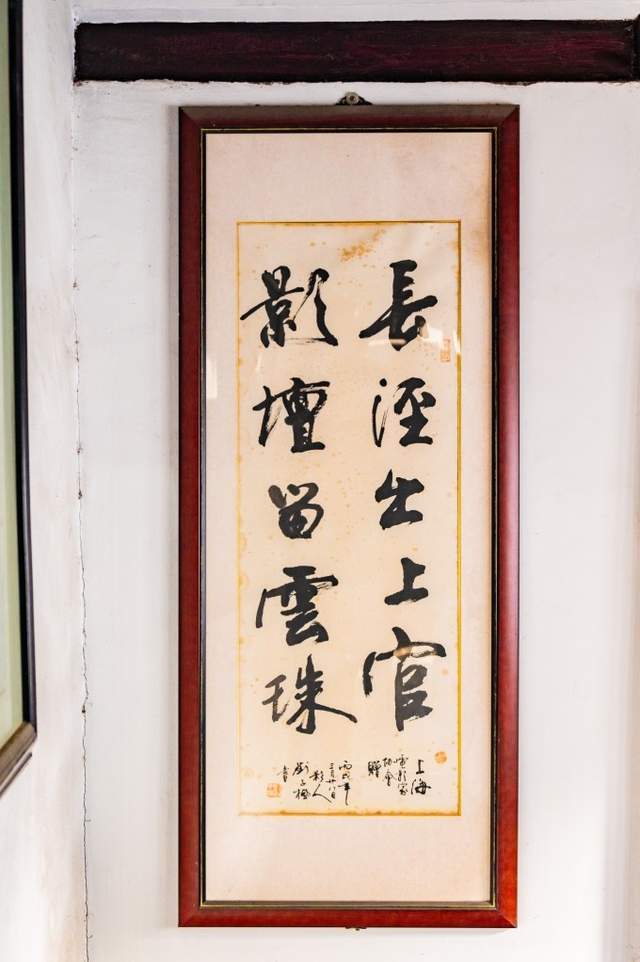 長涇出上官
影壇留雲珠
上海
電影家
協會
贈
丙戌年
三月廿八日
影人
劉子楓
書